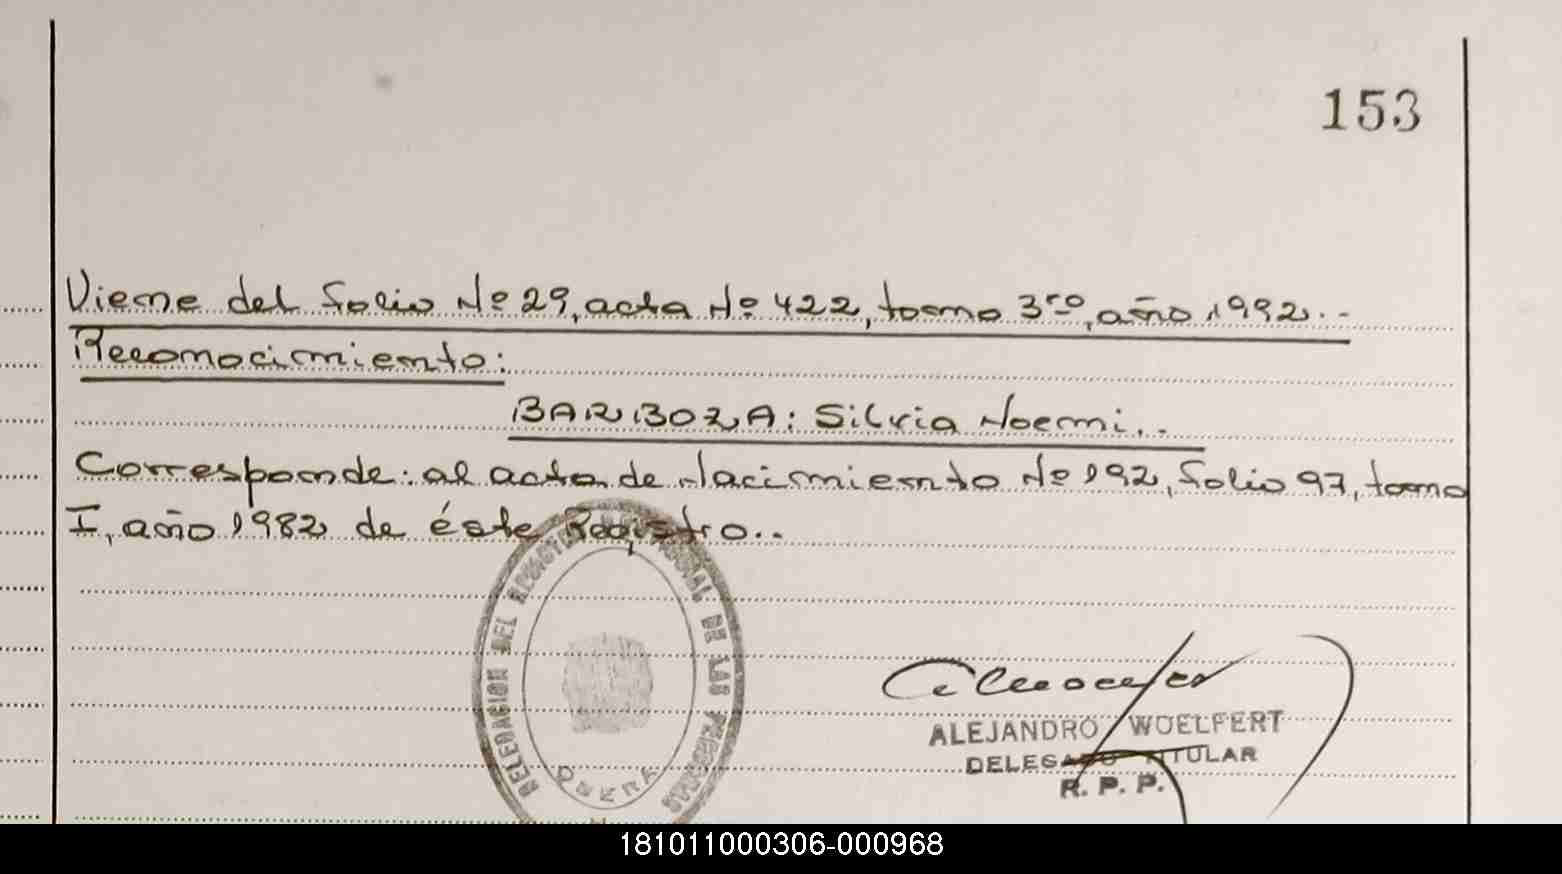 153
Viene del folio Nº 29, acta Nº 422, tomo 3ro, año 1992..
Reconocimiento:
BARBOZA: Silvia Noemi..
Corresponde: al acta de Nacimiento Nº 192, folio 97, tomo
I, año 1982 de éste Registro..
DELEGACION DEL REGISTRO PROVINCIAL DE LAS PERSONAS
OBERA
ALEJANDRO WOELFERT
DELEGADO TITULAR
R. P. P.
181011000306-000968